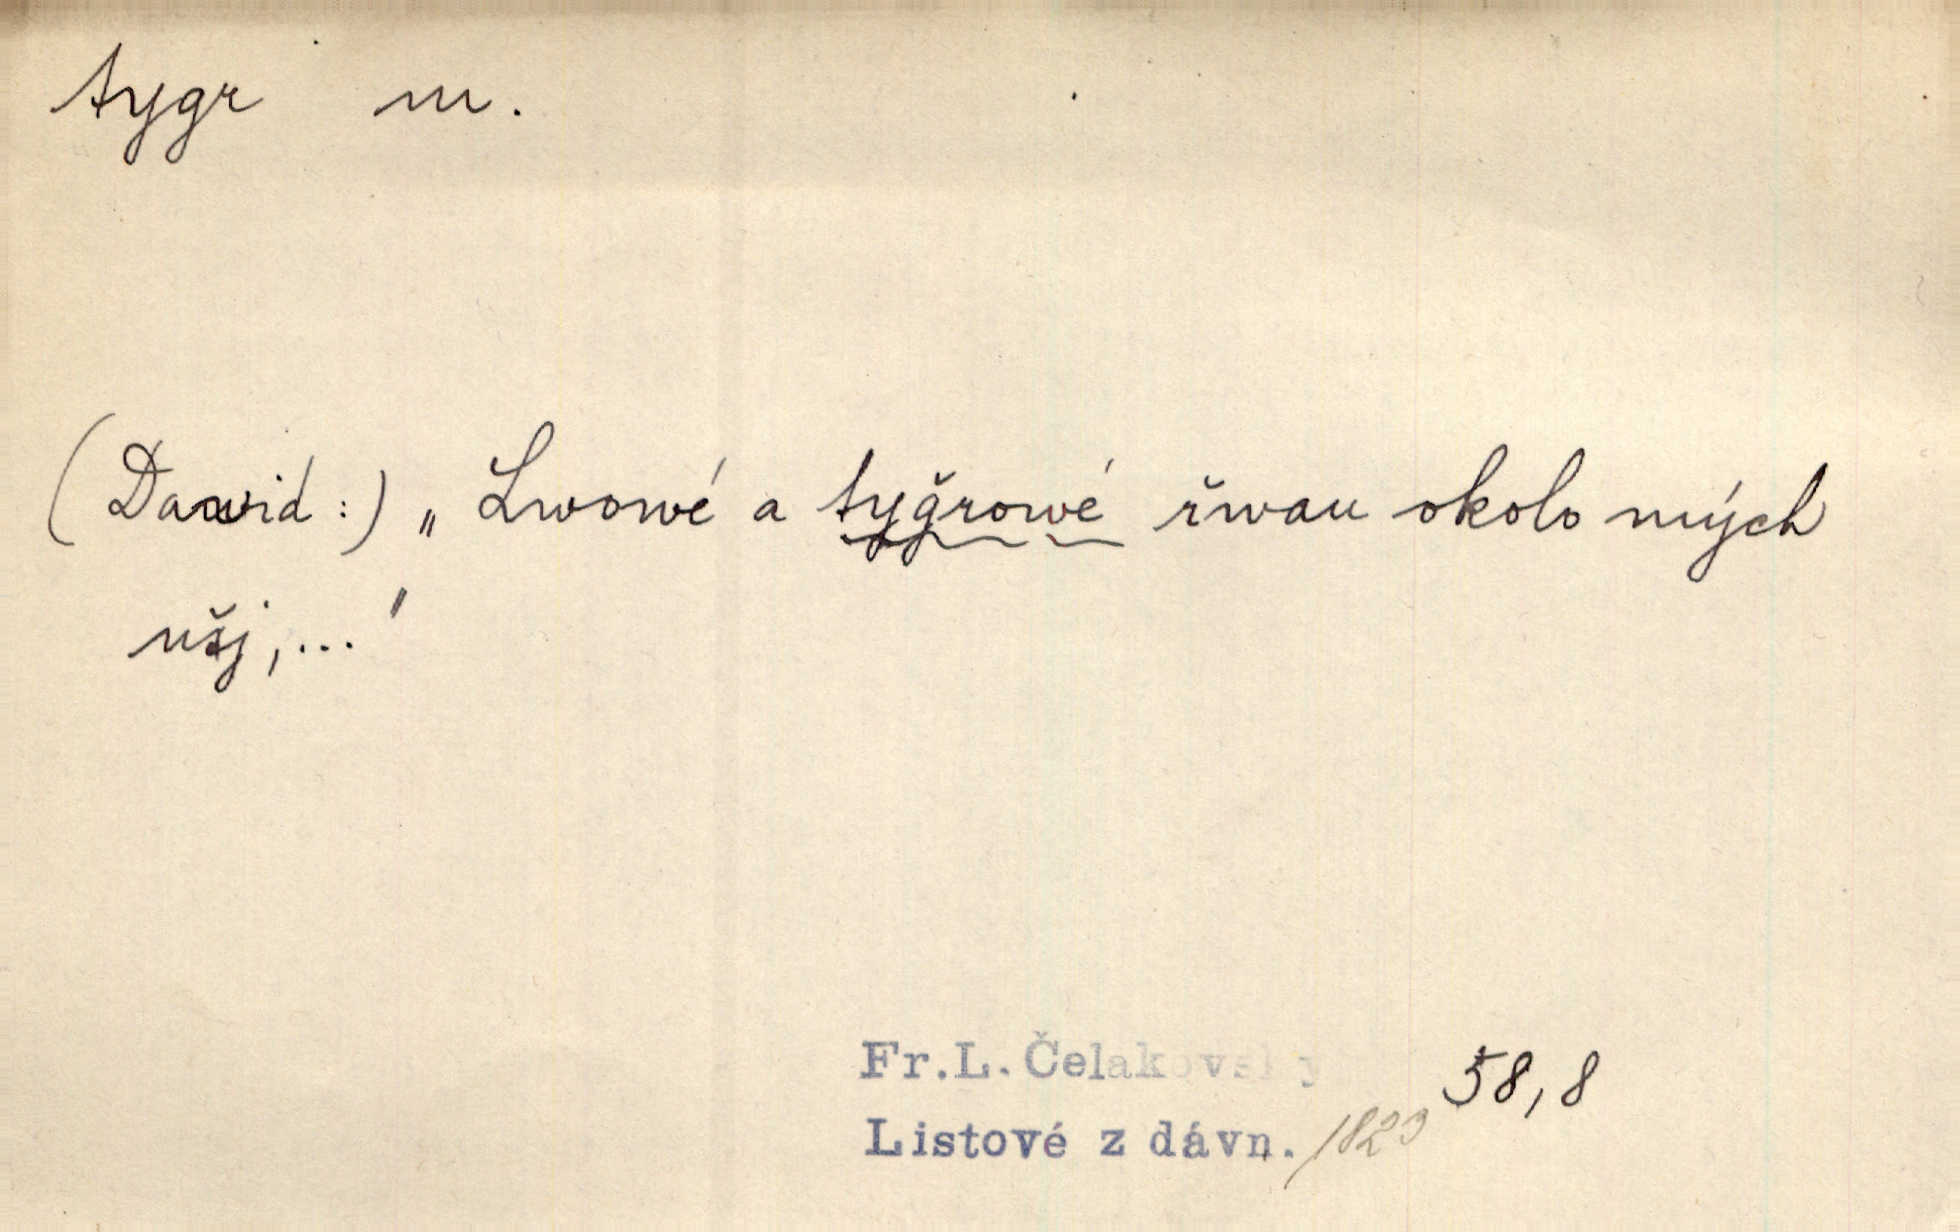 tygr m.
(Dawid:) „Lwowé a tyğrowé řwau okolo mých
ušj,..."
Fr.L. Čelakovský 58,8
Listové z dávn. 1823